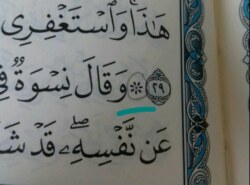 هَٰذَا ۚ وَٱسْتَغْفِرِى
٢٩ ۞ وَقَالَ نِسْوَةٌ فِى
عَن نَّفْسِهِۦ ۖ قَدْ شَ